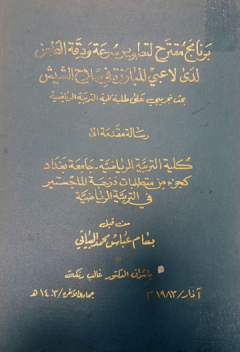 برنامج مقترح لتطوير سرعة ودقة الطعن
لدى لاعبي المبارزة في سلاح الشيش
بحث تجريبي على طلبة كلية التربية الرياضية
رسالة مقدمة الى
كلية التربية الرياضية، جامعة بغداد
كجزء من متطلبات درجة الماجستير
في التربية الرياضية
من قبل
بسام عباس محمد البياتي
باشراف الدكتور غالب
آذار / ١٩٨٣ م
جمادى الآخرة / ١٤٠٣ هـ